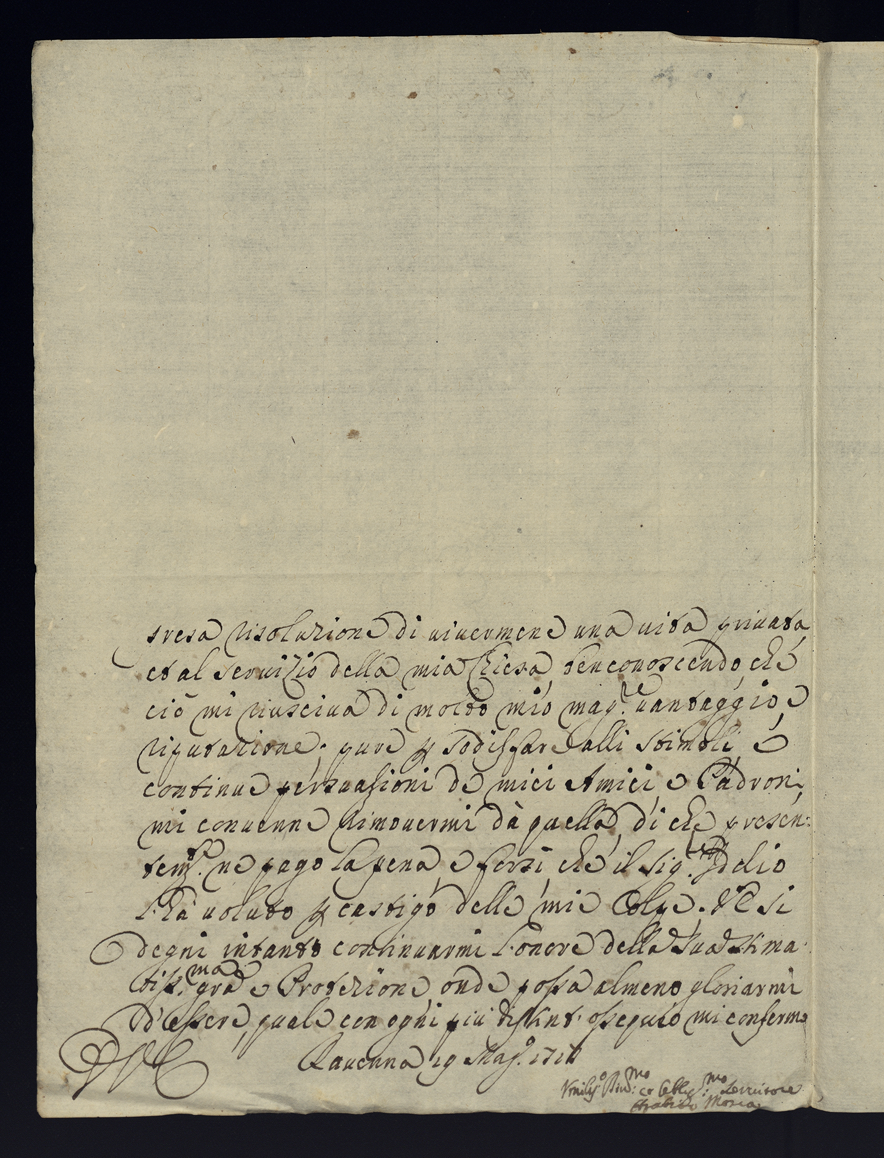 presa risoluzione di vivermene una vita privata,
et al servizio della mia Chiesa, benconoscendo, che
ciò mi riusciva di molto mio mag.r vantaggio, e
riputazione; pure p sodisfare alli stimoli, é
continue persuasioni de miei Amici e Padroni,
mi convenne rimovermi dà quella, di che presen:
tem.te ne pago la pena, e forsi che il Sig.r Iddio
l'hà voluto p castigo delle mie Colpe. VE si
degni intanto continuarmi l'onore della Sua stima:
tiss:ma gra e Protezione onde possa almeno gloriarmi
d'Essere, quale con ogni più distint.o ossequio mi confermo
DVE Ravenna 19 Mag.o 1718
Umiliss.o Div:mo et Obblig:mo Servitore